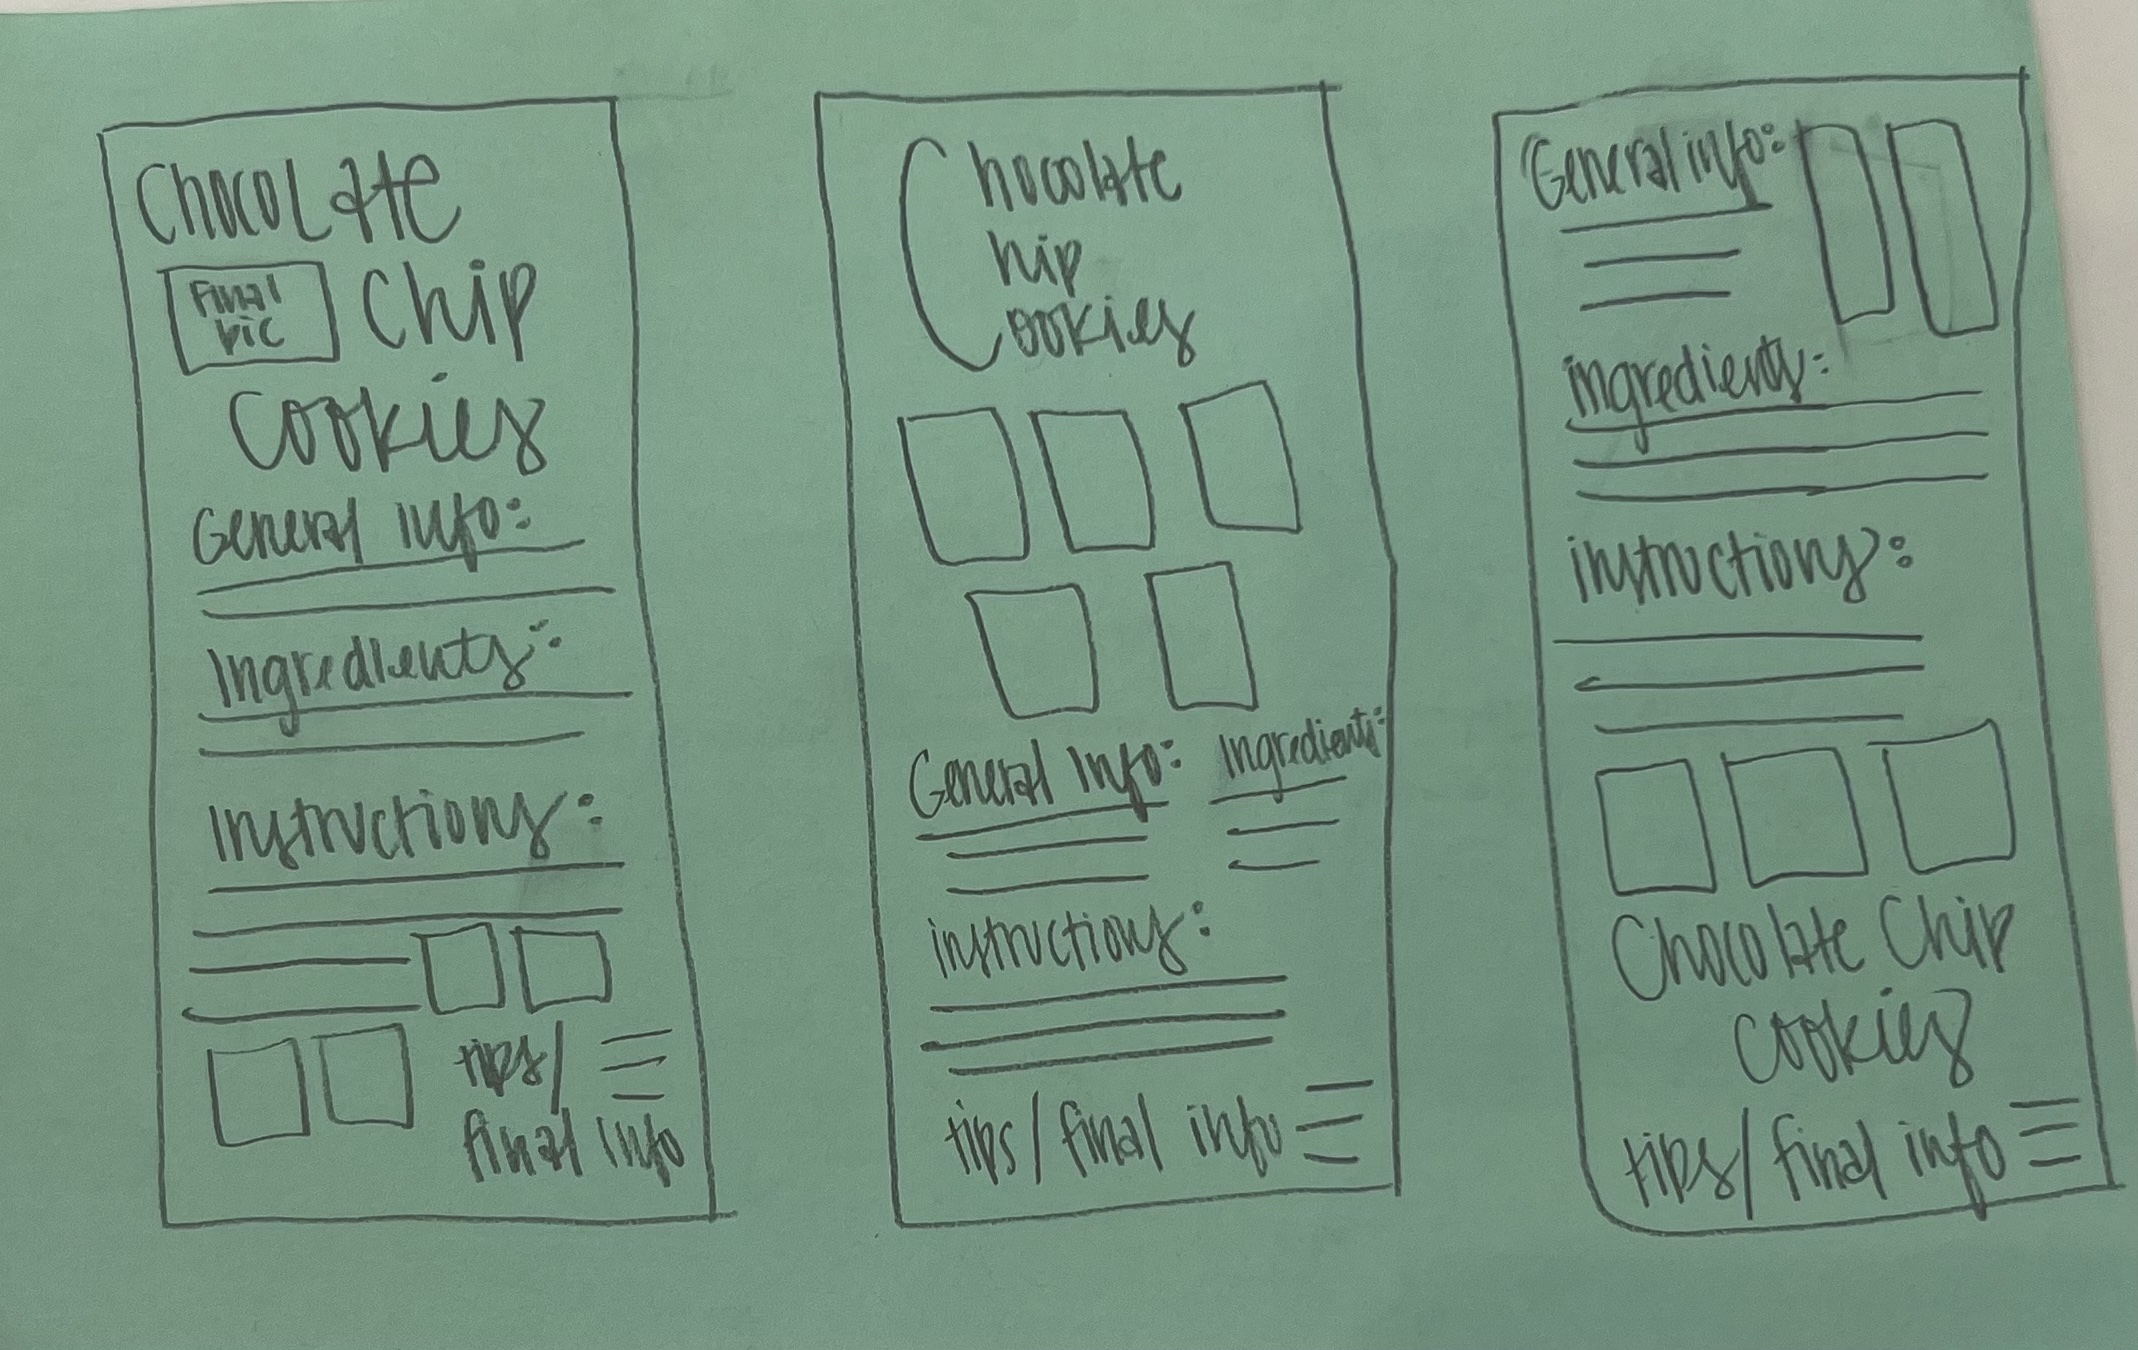 Chocolate
Final
pic
Chip
Cookies
General Info:
Ingredients:
Instructions:
tips/
final info
Chocolate
hip
ookies
General Info:
Ingredients:
instructions:
tips/final info
General info:
ingredients:
instructions:
Chocolate Chip
Cookies
tips/final info